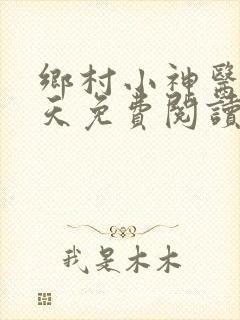 鄉村小神醫
天免費閱讀
我是木木